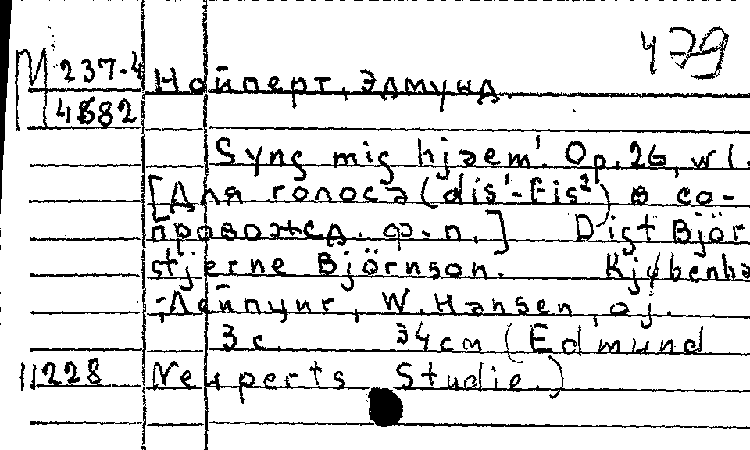 479
М 237-4 Нойперт, Эдмунд.
4882
Syng mig hjaem! Op. 26, №1.
[Для голоса (dis¹-fis²) в со-
провожд. ф.п.] Digt Björ
stjerne Björnson. Kjøbenha
; Лейпциг, W. Hansen, aj.
3 с. 34 cm (Edmund
11228 Neuperts Studie.)